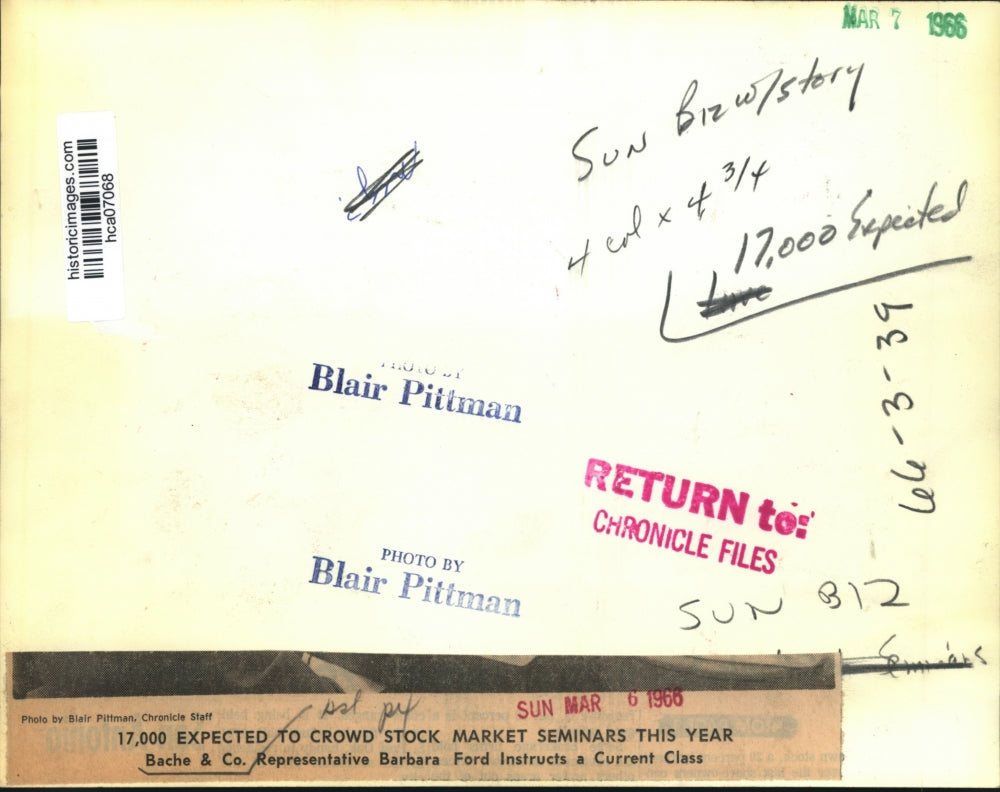 MAR 7 1966
Sun Biz w/story
4 col x 4 3/4
17,000 Expected
historicimages.com
hca07068
Blair Pittman
66-3-39
RETURN to:
CHRONICLE FILES
PHOTO BY
Blair Pittman
SUN BIZ
Seminars
SUN MAR 6 1966
Photo by Blair Pittman, Chronicle Staff
17,000 EXPECTED TO CROWD STOCK MARKET SEMINARS THIS YEAR
Bache & Co. Representative Barbara Ford Instructs a Current Class